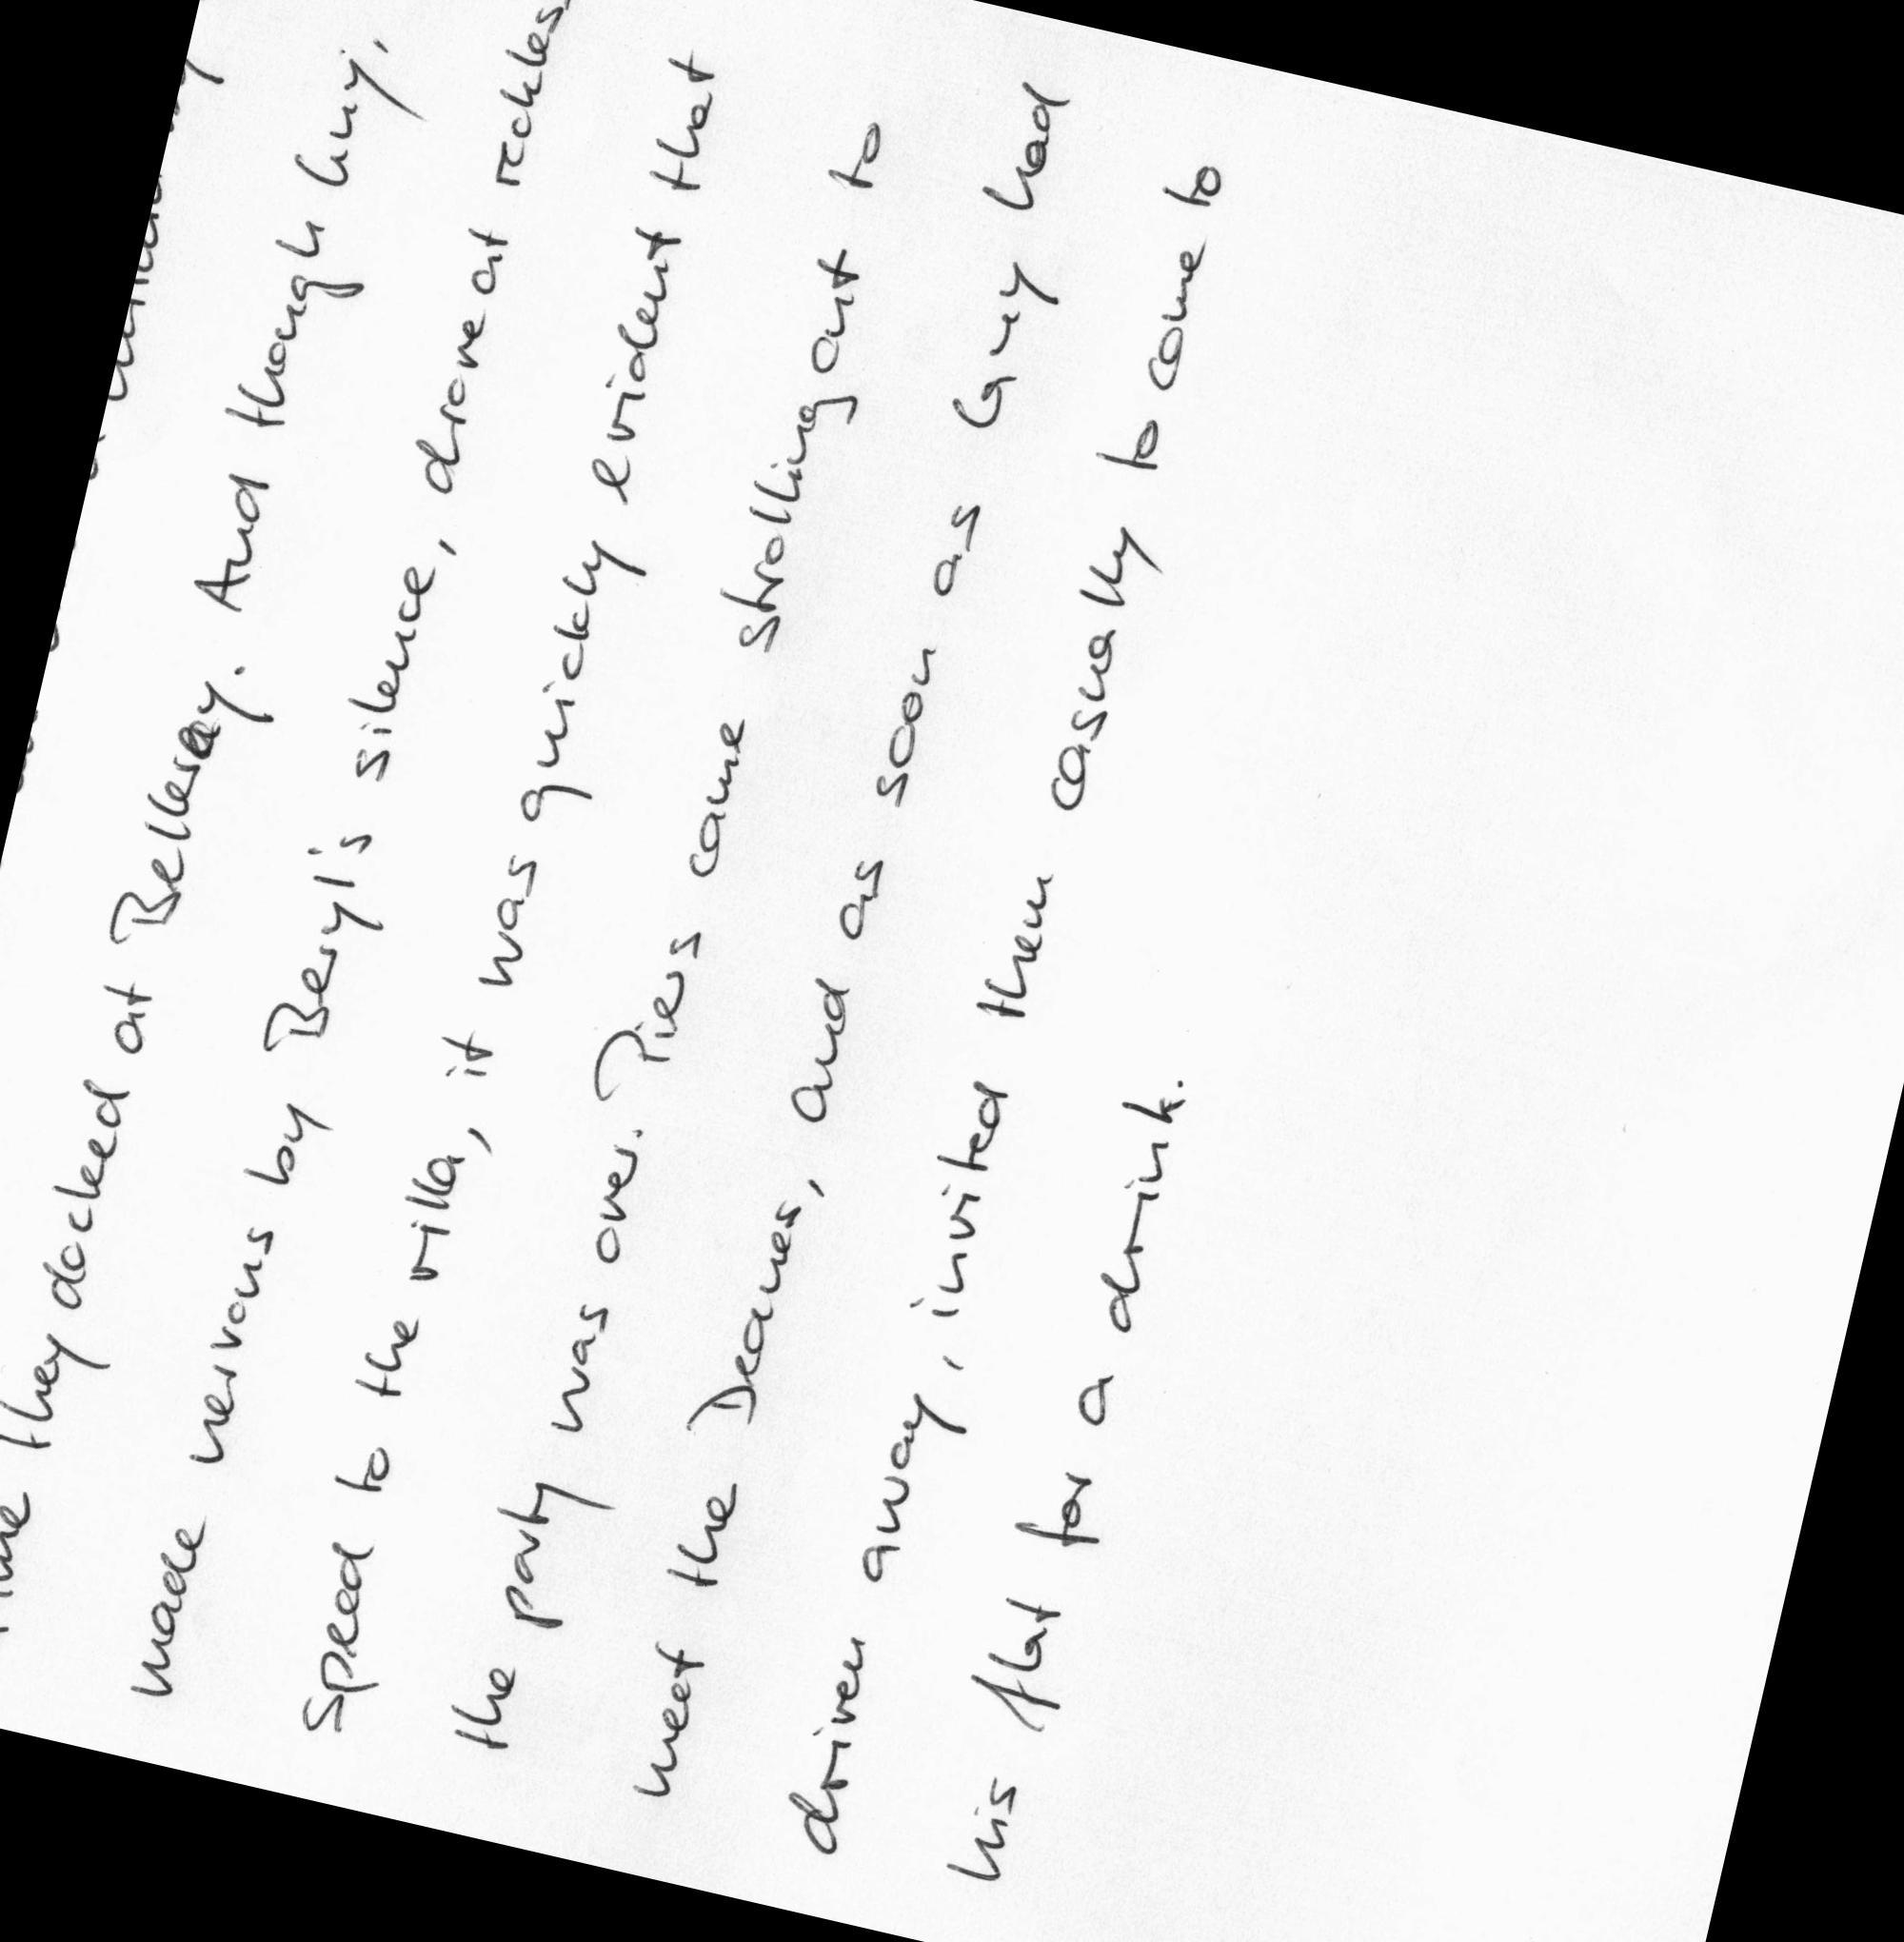 time they docked at Belleray. And though Guy,
made nervous by Beryl's silence, drove at reckless
speed to the villa, it was quickly evident that
the party was over. Piers came strolling out to
meet the Deanes, and as soon as Guy had
driven away, invited them casually to come to
his flat for a drink.